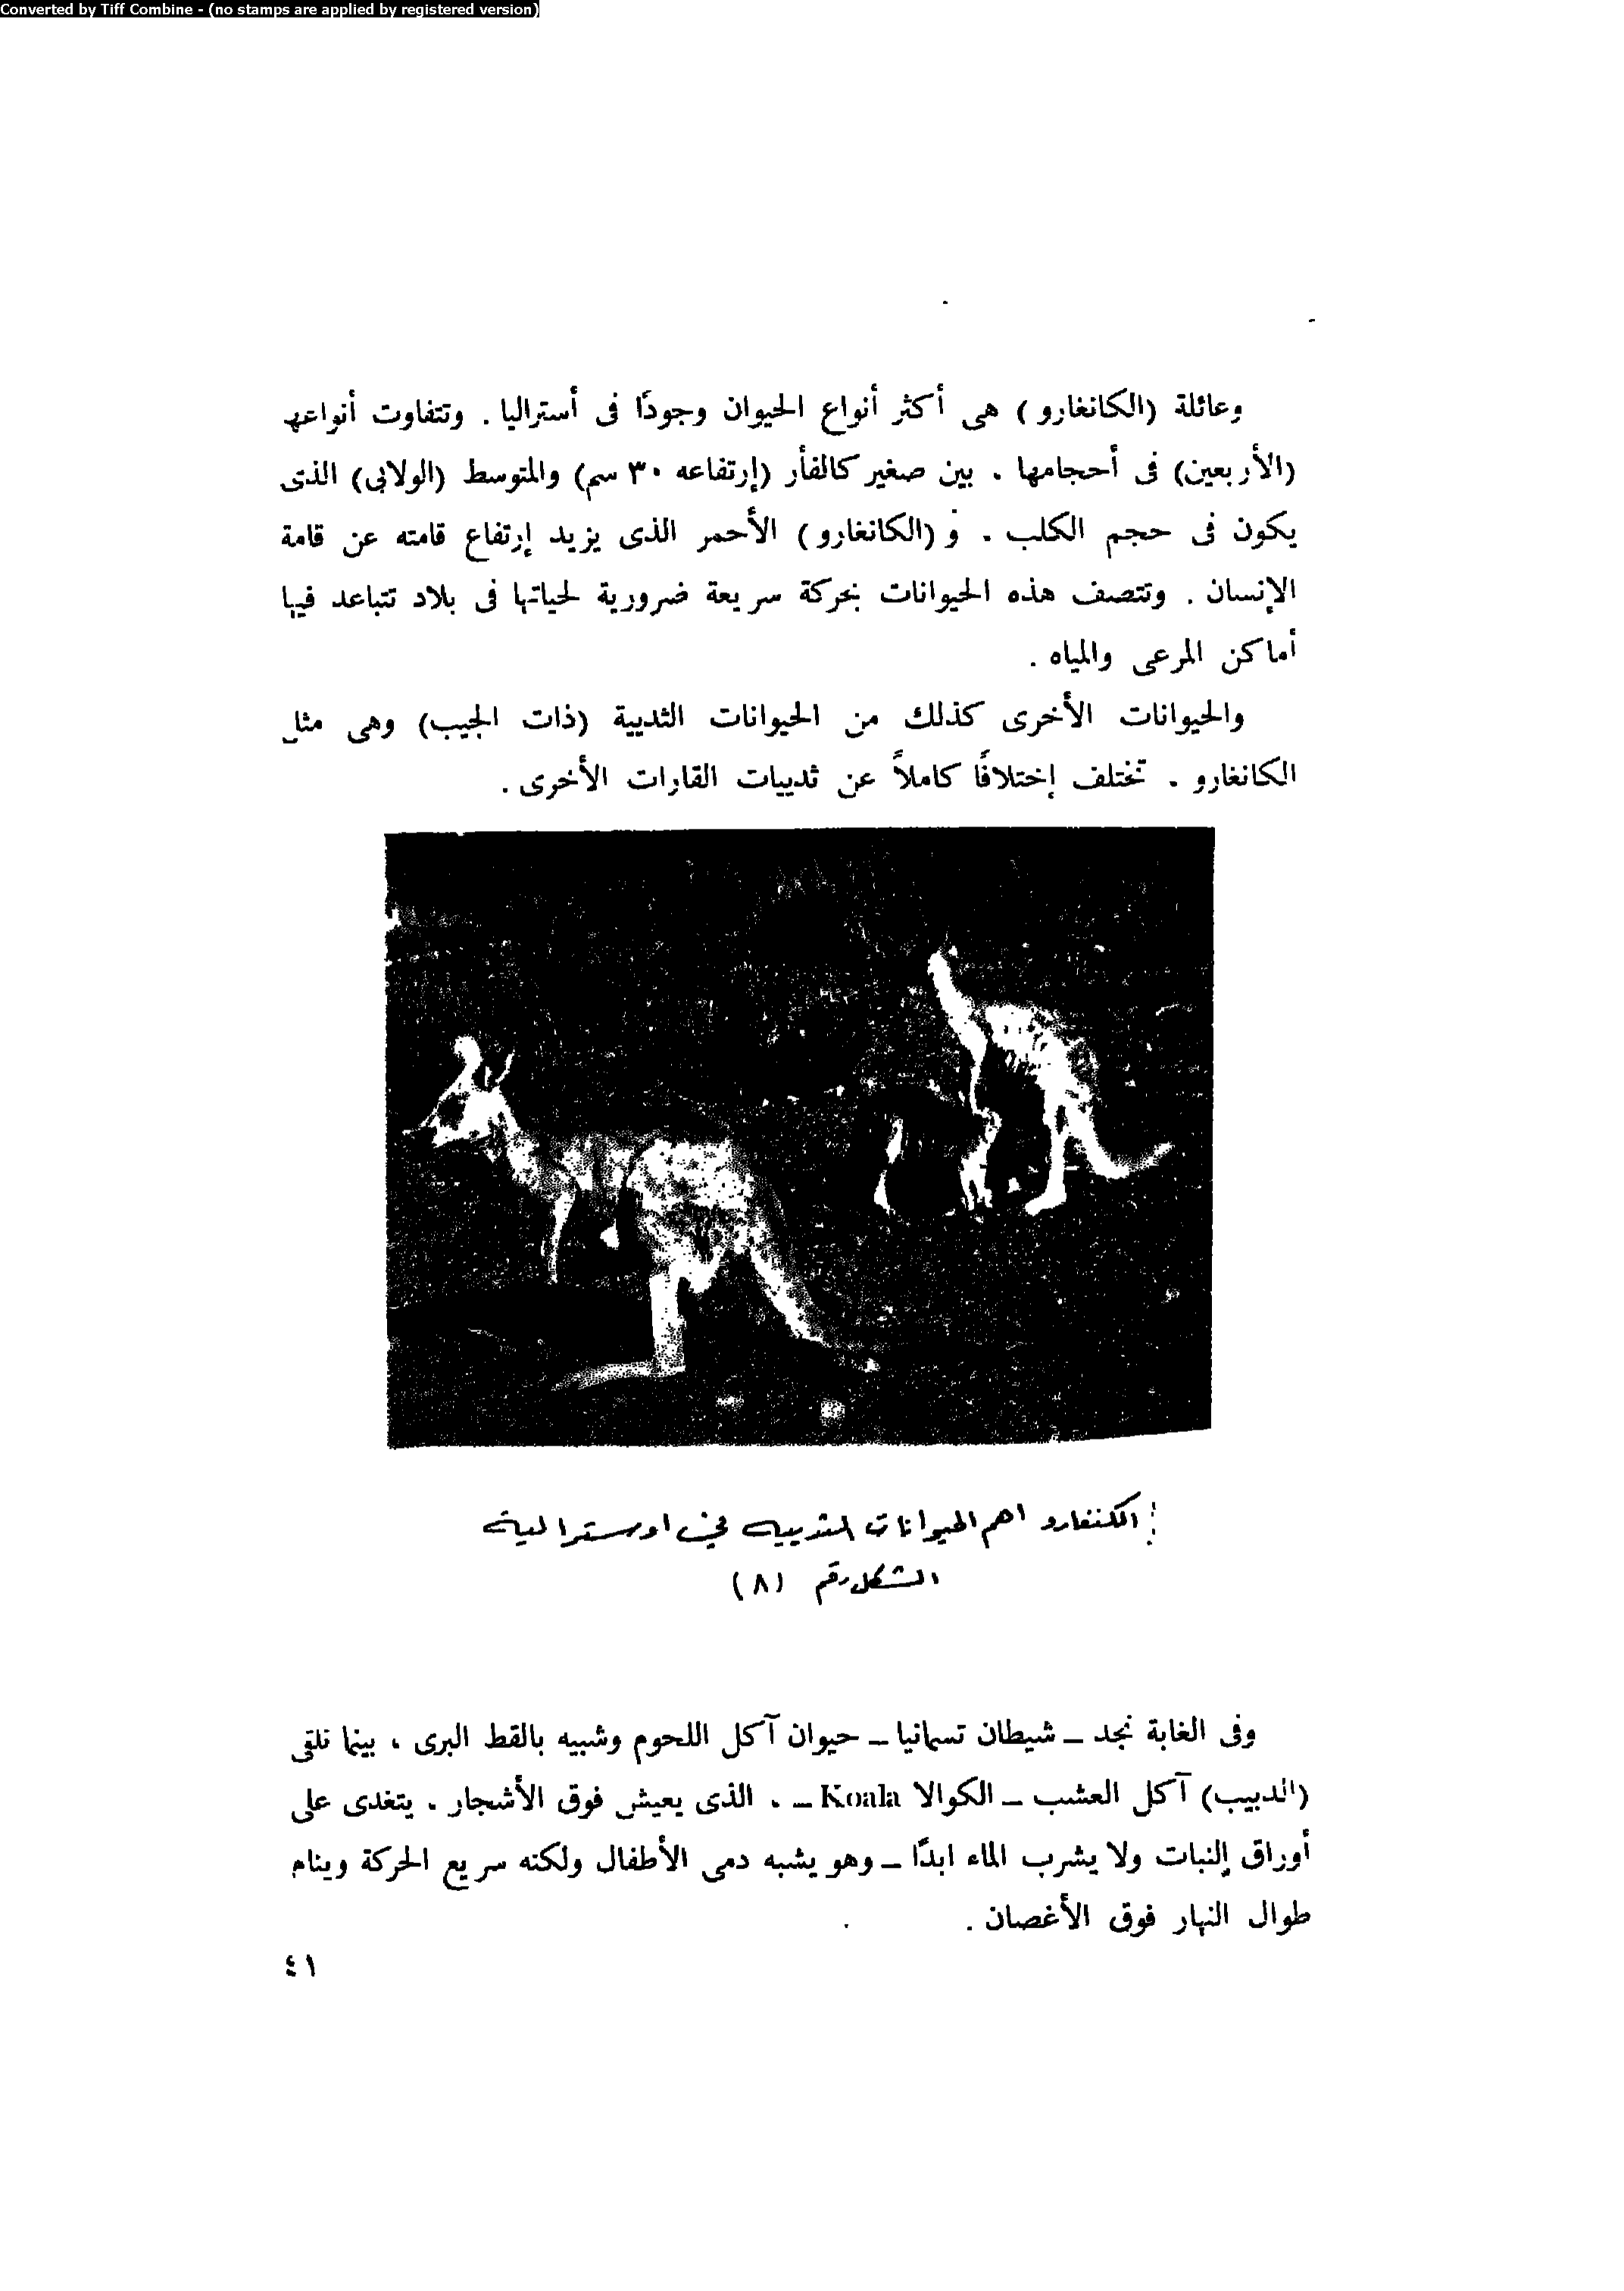 Converted by Tiff Combine - (no stamps are applied by registered version)
وعائلة (الكانغارو) هى أكثر أنواع الحيوان وجودًا فى أستراليا . وتتفاوت أنواعه
(الأربعين) فى أحجامها . بين صغير كالفأر (إرتفاعه ٣٠ سم) والمتوسط (الولابى) الذى
يكون فى حجم الكلب . و (الكانغارو) الأحمر الذى يزيد إرتفاع قامته عن قامة
الإنسان . وتتصف هذه الحيوانات بحركة سريعة ضرورية لحياتها فى بلاد تتباعد فيها
أماكن المرعى والمياه .
والحيوانات الأخرى كذلك من الحيوانات الثديية (ذات الجيب) وهى مثل
الكانغارو . تختلف إختلافًا كاملاً عن ثدييات القارات الأخرى .
الكنغارو اهم الحيوانات الثدييه في اوسترالية
الشكل رقم (٨)
وفى الغابة نجد ــ شيطان تسمانيا ــ حيوان آكل اللحوم وشبيه بالقط البرى ، بينما نلقى
(الدبيب) آكل العشب ــ الكوالا Koala ــ ، الذى يعيش فوق الأشجار . يتغدى على
أوراق النبات ولا يشرب الماء ابدًا ــ وهو يشبه دمى الأطفال ولكنه سريع الحركة وينام
طوال النهار فوق الأغصان .
٤١